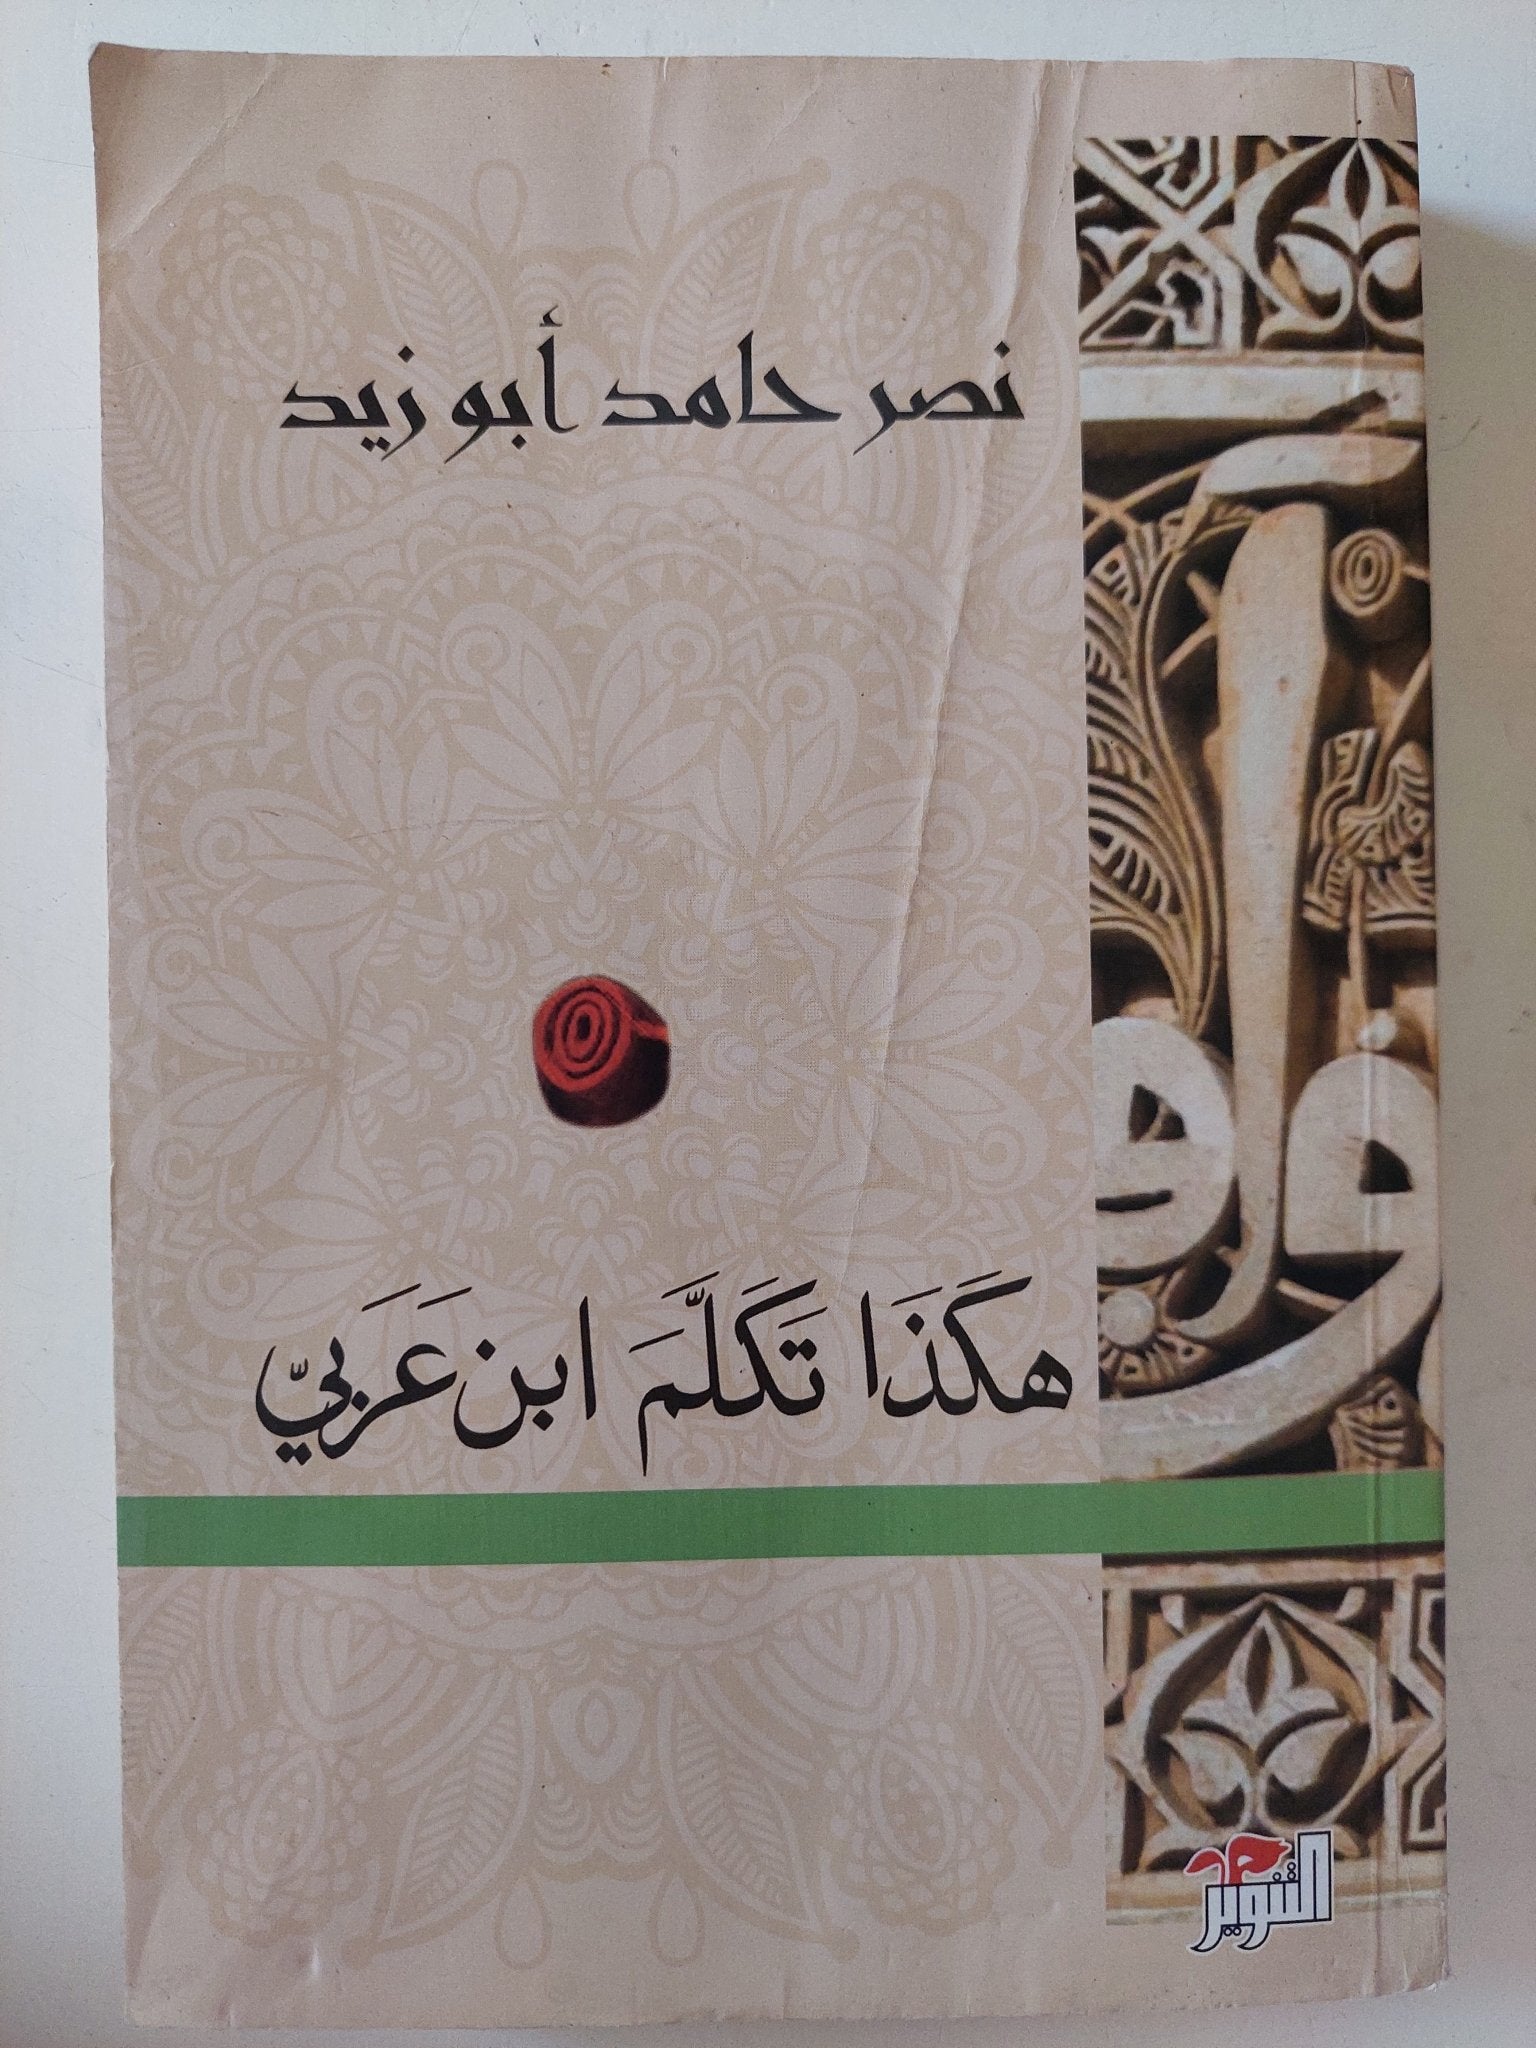 نصر حامد أبو زيد
هكَذَا تَكَلَّمَ ابن عَرَبيّ
التنوير